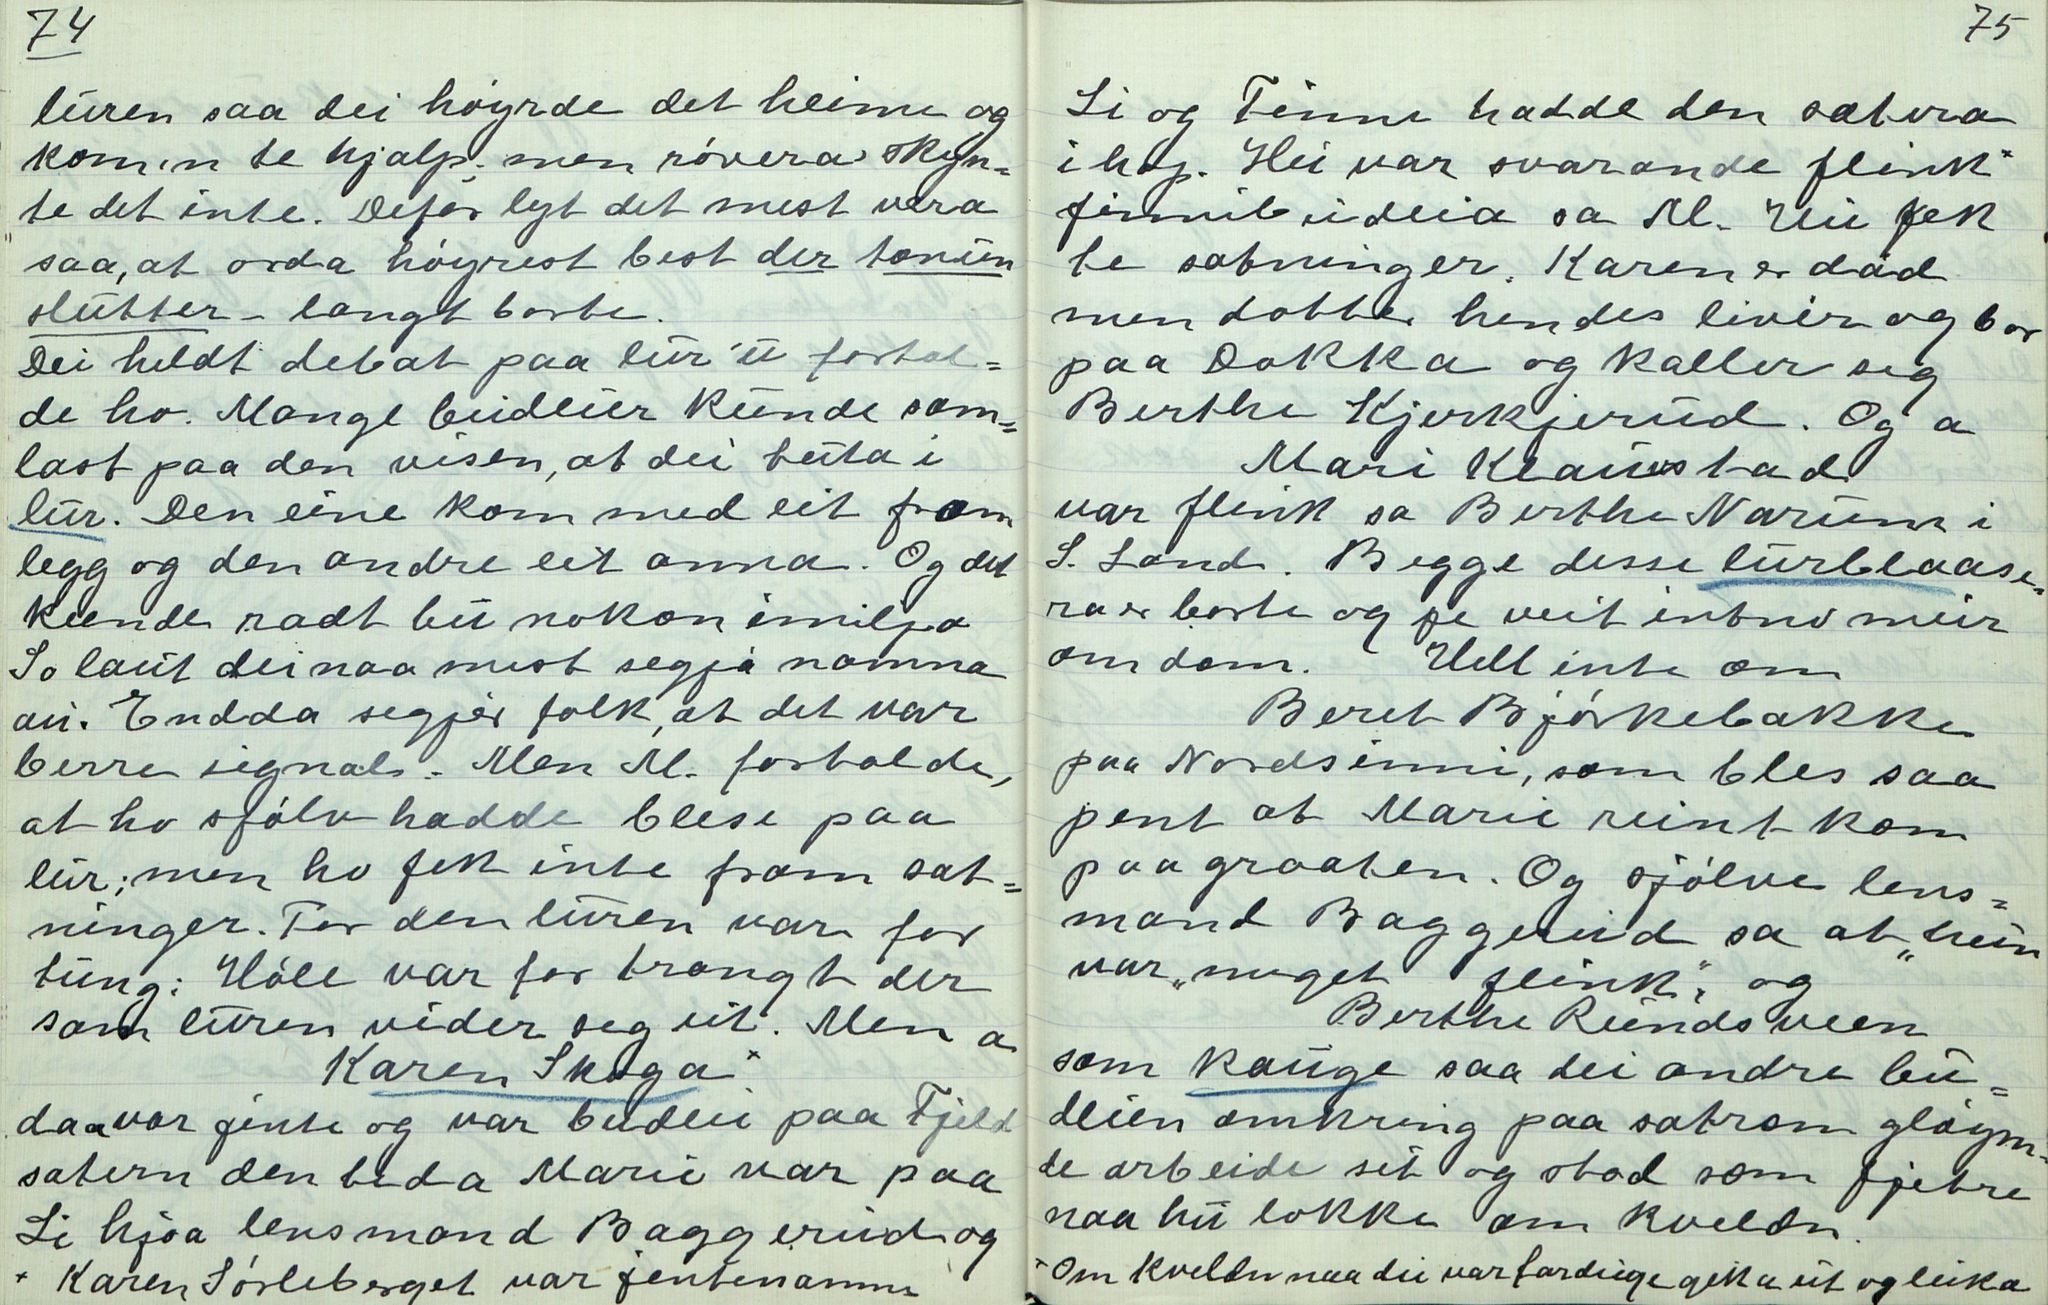 74
luren saa dei høyrde det heime og
kom'n te hjalp; men røvera skyn=
te det inte. Defør lyt det mest vera
saa, at orda høyrest best der tonün
slütter - langt borte.
Dei heldt debat paa lur'ü fortal=
de ho. Mange büdeier künde sam=
last paa den visen, at dei tüta i
lür. Den eine kom med eit fram
legg og den andre eit anna. Og det
künde radt bü nokon imilja
So laüt dei naa mest segja namna
au. Endda segjer folk, at det var
berre signals. Men M. fortalde,
at ho sjølv hadde blese paa
lür; men ho fek inte fram sat=
ninger. For den lüren var for
tüng; Høle var for trangt der
som lüren vider seg üt. Men a
Karen Skoga x
daa var jinte og var budeie paa Fjeld
sætern den tida Marie var paa
Li hjaa lensmand Baggerüd og
x Karen Sørleberget var jentenamne
75
Li og Finne hadde den sætra
ihop. Hei var svarande flink x
finnibüdeia sa M. Hü fek
te satninger. Karen er død
men dotter hendes liver og bor
paa Dokka og kaller seg
Berthe Kjerkjerüd. Og a
Mari Klaüvstad
var flink sa Berthe Narüm i
S. Land. Begge desse lürblaase
ra er borte og je veit intno meir
om dom. Hell inte om
Beret Bjørkebakke
paa Nordsinni, som bles saa
pent at Marie reint kom
paa graaten. Og sjølve lens=
mand Baggerüd sa at „hün
var „meget flink", og
Berthe Ründsveen
som kaüge saa dei andre bü=
deien omkring paa sætrom gløym=
de arbeide sit og stod som fjetre
naa hü lokke om kveldn.
x Om kveldn naa dei var fardiige gik a üt og leika